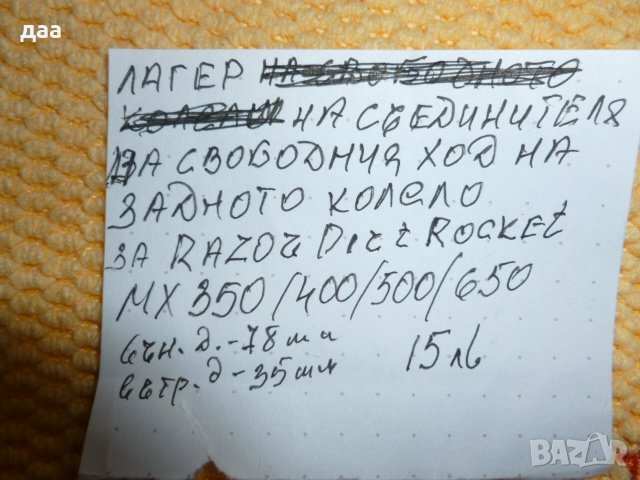 даа
ЛАГЕР НА СВОБОДНОТО
КОЛЕЛО НА СЪЕДИНИТЕЛЯ
ЗА СВОБОДНИЯ ХОД НА
ЗАДНОТО КОЛЕЛО
ЗА RAZOR Dirt ROCKET
MX 350/400/500/650
външ. д. - 78 мм
вътр. д - 35 мм
15 лв
BAZAR